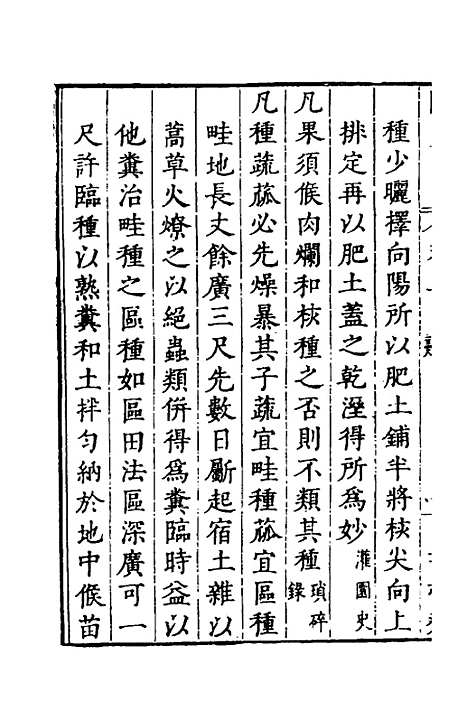 種少曬擇向陽所以肥土鋪半將核尖向上
排定再以肥土蓋之乾溼得所為妙灌園史
凡果須候肉爛和核種之否則不類其種瑣碎錄
凡種蔬蓏必先燥暴其子蔬宜畦種蓏宜區種
畦地長丈餘廣三尺先數日斸起宿土雜以
蒿草火燎之以絕蟲類併得為糞臨時益以
他糞治畦種之區種如區田法區深廣可一
尺許臨種以熟糞和土拌勻納於地中候苗